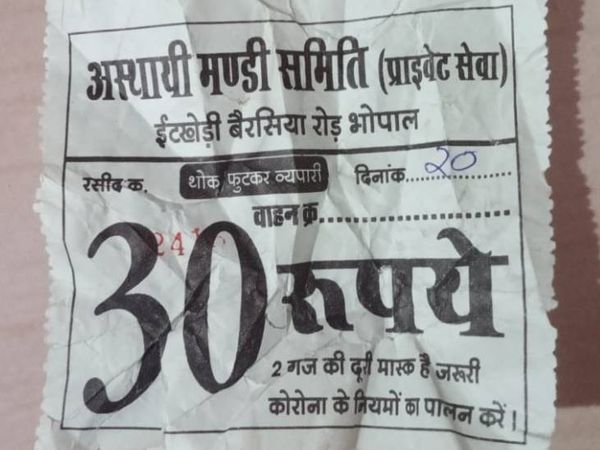 अस्थायी मण्डी समिति (प्राइवेट सेवा)
ईटखेड़ी बैरसिया रोड़ भोपाल
रसीद क. थोक फुटकर व्यापारी दिनांक.............. 20
वाहन क्र..........................
30 रूपये
2 गज की दूरी मास्क है जरूरी
कोरोना के नियमों का पालन करें।